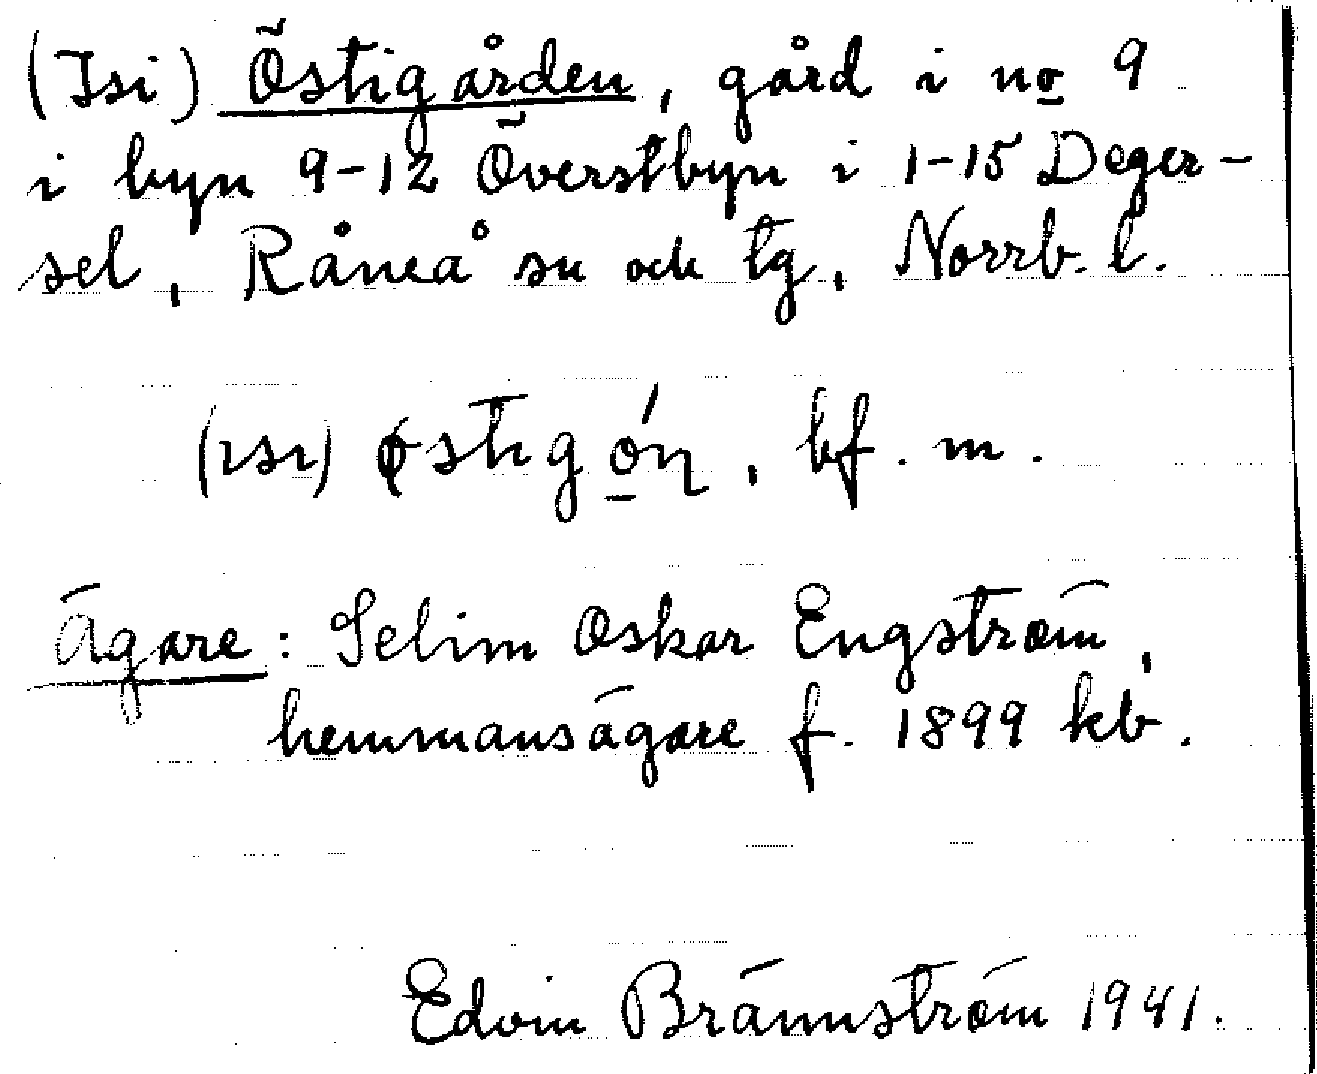 (Isi) Östigården, gård i no 9
i byn 9-12 Överstbyn i 1-15 Deger-
sel, Råneå sn och tg, Norrb. l.
(ısı) ɸstıgǫ́ɳ, bf. m.
Ägare: Selim Oskar Engström,
hemmansägare f. 1899 kb.
Edvin Brännström 1941.